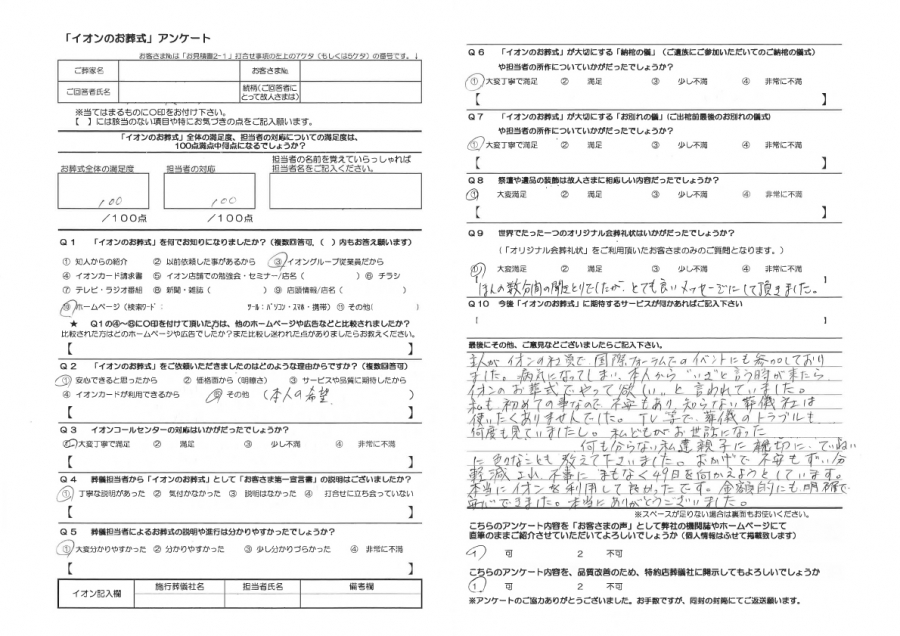 「イオンのお葬式」アンケート
お客さま№は「お見積書2-1」打合せ事項の左上の7ケタ(もしくは5ケタ)の番号です。↓
ご葬家名 お客さま№
ご回答者氏名 続柄(ご回答者にとって故人さまは)
※当てはまるものに○印をお付け下さい。
【 】には該当のない項目や特にお気づきの点をご記入願います。
「イオンのお葬式」全体の満足度、担当者の対応についての満足度は、
100点満点中何点になるでしょうか?
お葬式全体の満足度 担当者の対応 担当者の名前を覚えていらっしゃれば
担当者名をご記入ください。
100 100
/100点 /100点
Q1 「イオンのお葬式」を何でお知りになりましたか?(複数回答可、( )内もお答え願います)
① 知人からの紹介 ② 以前依頼した事があるから ③ イオングループ従業員だから
④ イオンカード請求書 ⑤ イオン店舗での勉強会・セミナー/店名( ) ⑥ チラシ
⑦ テレビ・ラジオ番組 ⑧ 新聞・雑誌( ) ⑨ 店頭情報/店名( )
⑩ ホームページ(検索ワード: ツール:パソコン・スマホ・携帯) ⑪ その他( )
★ Q1の④~⑩に○印を付けて頂いた方は、他のホームページや広告などと比較されましたか?
比較された方はどのホームページや広告でしたか?また比較し迷われた点がありましたらお教えください。
【 】
Q2 「イオンのお葬式」をご依頼いただきましたのはどのような理由からですか?(複数回答可)
① 安心できると思ったから ② 価格面から(明瞭さ) ③ サービスや品質に期待したから
④ イオンカードが利用できるから ⑤ その他 (本人の希望 )
【 】
Q3 イオンコールセンターの対応はいかがだったでしょうか?
① 大変丁寧で満足 ② 満足 ③ 少し不満 ④ 非常に不満
【 】
Q4 葬儀担当者から「イオンのお葬式」として「お客さま第一宣言書」の説明はございましたか?
① 丁寧な説明があった ② 気付かなかった ③ 説明はなかった ④ 打合せに立ち会っていない
【 】
Q5 葬儀担当者によるお葬式の説明や進行は分かりやすかったでしょうか?
① 大変分かりやすかった ② 分かりやすかった ③ 少し分かりづらかった ④ 非常に不満
【 】
イオン記入欄 施行葬儀社名 担当者氏名 備考欄
Q6 「イオンのお葬式」が大切にする「納棺の儀」(ご遺族にご参加いただいてのご納棺の儀式)
や担当者の所作についていかがだったでしょうか?
① 大変丁寧で満足 ② 満足 ③ 少し不満 ④ 非常に不満
【 】
Q7 「イオンのお葬式」が大切にする「お別れの儀」(ご出棺前最後のお別れの儀式)
や担当者の所作についていかがだったでしょうか?
① 大変丁寧で満足 ② 満足 ③ 少し不満 ④ 非常に不満
【 】
Q8 祭壇や遺品の装飾は故人さまに相応しい内容だったでしょうか?
① 大変満足 ② 満足 ③ 少し不満 ④ 非常に不満
【 】
Q9 世界でたった一つのオリジナル会葬礼状はいかがだったでしょうか?
(「オリジナル会葬礼状」をご利用頂いたお客さまのみのご質問となります。)
① 大変満足 ② 満足 ③ 少し不満 ④ 非常に不満
ほんの数分間の聞きとりでしたが、とても良いメッセージにして頂きました。
Q10 今後「イオンのお葬式」に期待するサービスが何かあればご記入下さい
【 】
最後にその他、ご意見などございましたらご記入下さい。
主人がイオンの社員で国際フォーラムでのイベントにも参加しており
ました。病気になってしまい、本人から"いざ"と言う時が来たら
イオンのお葬式でやって欲しい。と言われていました。
私も初めての事なので、不安もあり知らない葬儀社は
使いたくありませんでした。TV等で、葬儀のトラブルも
何度も見ていましたし。私どもがお世話になった
何も分らない私達親子に親切に、ていねい
に色々なことも教えて下さいました。おかげで不安もずい分
軽減され、無事にまもなく49日を向かえようとしています。
本当にイオンを利用して良かったです。金額的にも明確で
安心できました。本当にありがとうございました。
※スペースが足りない場合は裏面もお使いください。
こちらのアンケート内容を「お客さまの声」として弊社の機関誌やホームページにて
直筆のままご紹介させていただいてよろしいでしょうか(個人情報はふせて掲載致します)
1 可 2 不可
こちらのアンケート内容を、品質改善のため、特約店葬儀社に開示してもよろしいでしょうか
1 可 2 不可
※アンケートのご協力ありがとうございました。お手数ですが、同封の封筒にてご返送願います。